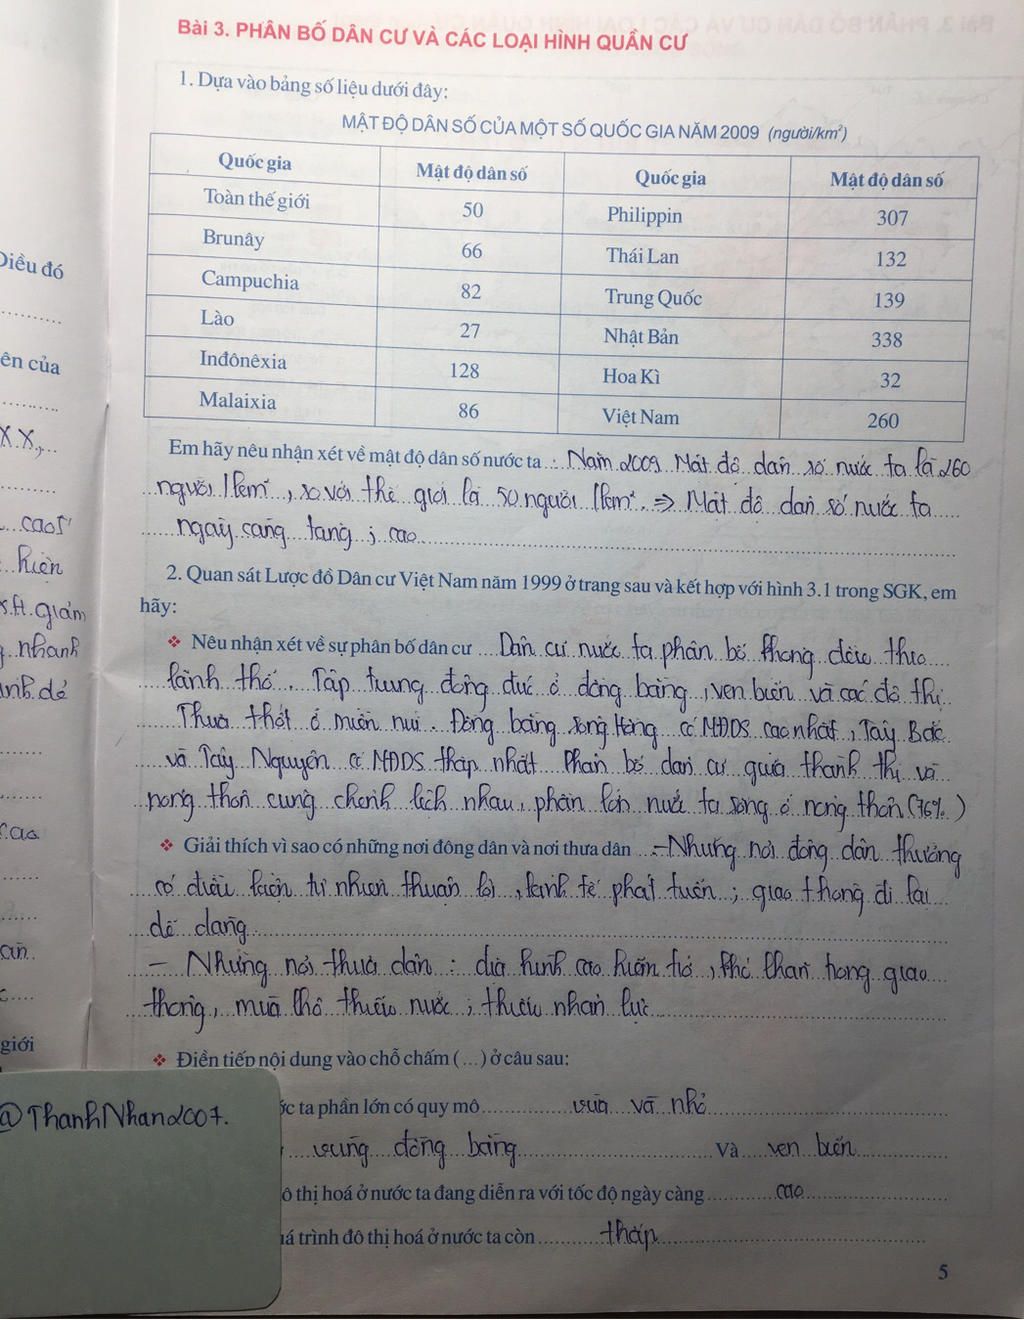 Bài 3. PHÂN BỐ DÂN CƯ VÀ CÁC LOẠI HÌNH QUẦN CƯ
1. Dựa vào bảng số liệu dưới đây:
MẬT ĐỘ DÂN SỐ CỦA MỘT SỐ QUỐC GIA NĂM 2009 (người/km²)
Quốc gia Mật độ dân số Quốc gia Mật độ dân số
Toàn thế giới 50 Philippin 307
Brunây 66 Thái Lan 132
Campuchia 82 Trung Quốc 139
Lào 27 Nhật Bản 338
Inđônêxia 128 Hoa Kì 32
Malaixia 86 Việt Nam 260
Em hãy nêu nhận xét về mật độ dân số nước ta : Năm 2009 Mật độ dân số nước ta là 260
người/km², so với thế giới là 50 người/km². => Mật độ dân số nước ta
ngày càng tăng ; cao
2. Quan sát Lược đồ Dân cư Việt Nam năm 1999 ở trang sau và kết hợp với hình 3.1 trong SGK, em
hãy:
❖ Nêu nhận xét về sự phân bố dân cư Dân cư nước ta phân bố không đều theo
lãnh thổ. Tập trung đông đúc ở đồng bằng, ven biển và các đô thị.
Thưa thớt ở miền núi. Đồng bằng sông Hồng có MĐDS cao nhất, Tây Bắc
và Tây Nguyên có MĐDS thấp nhất Phân bố dân cư giữa thành thị và
nông thôn cũng chênh lệch nhau, phần lớn nước ta sống ở nông thôn (76%)
❖ Giải thích vì sao có những nơi đông dân và nơi thưa dân - Những nơi đông dân thường
có điều kiện tự nhiên thuận lợi, kinh tế phát triển ; giao thông đi lại
dễ dàng
- Những nơi thưa dân : địa hình cao hiểm trở, khó khăn trong giao
thông, mùa khô thiếu nước ; thiếu nhân lực
❖ Điền tiếp nội dung vào chỗ chấm (...) ở câu sau:
ớc ta phần lớn có quy mô vừa và nhỏ
vùng đồng bằng Và ven biển
ô thị hoá ở nước ta đang diễn ra với tốc độ ngày càng cao
uá trình đô thị hoá ở nước ta còn thấp
5
Điều đó
ên của
X.X,
cao
hiện
giảm
nhanh
dẻ
cao
ân
giới
@ThanhNhan2007.